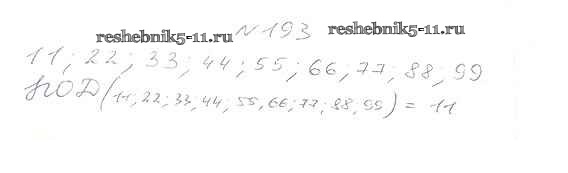 reshebnik5-11.ru № 193 reshebnik5-11.ru
11; 22; 33; 44; 55; 66; 77; 88; 99
НОД(11; 22; 33, 44; 55, 66; 77; 88, 99) = 11